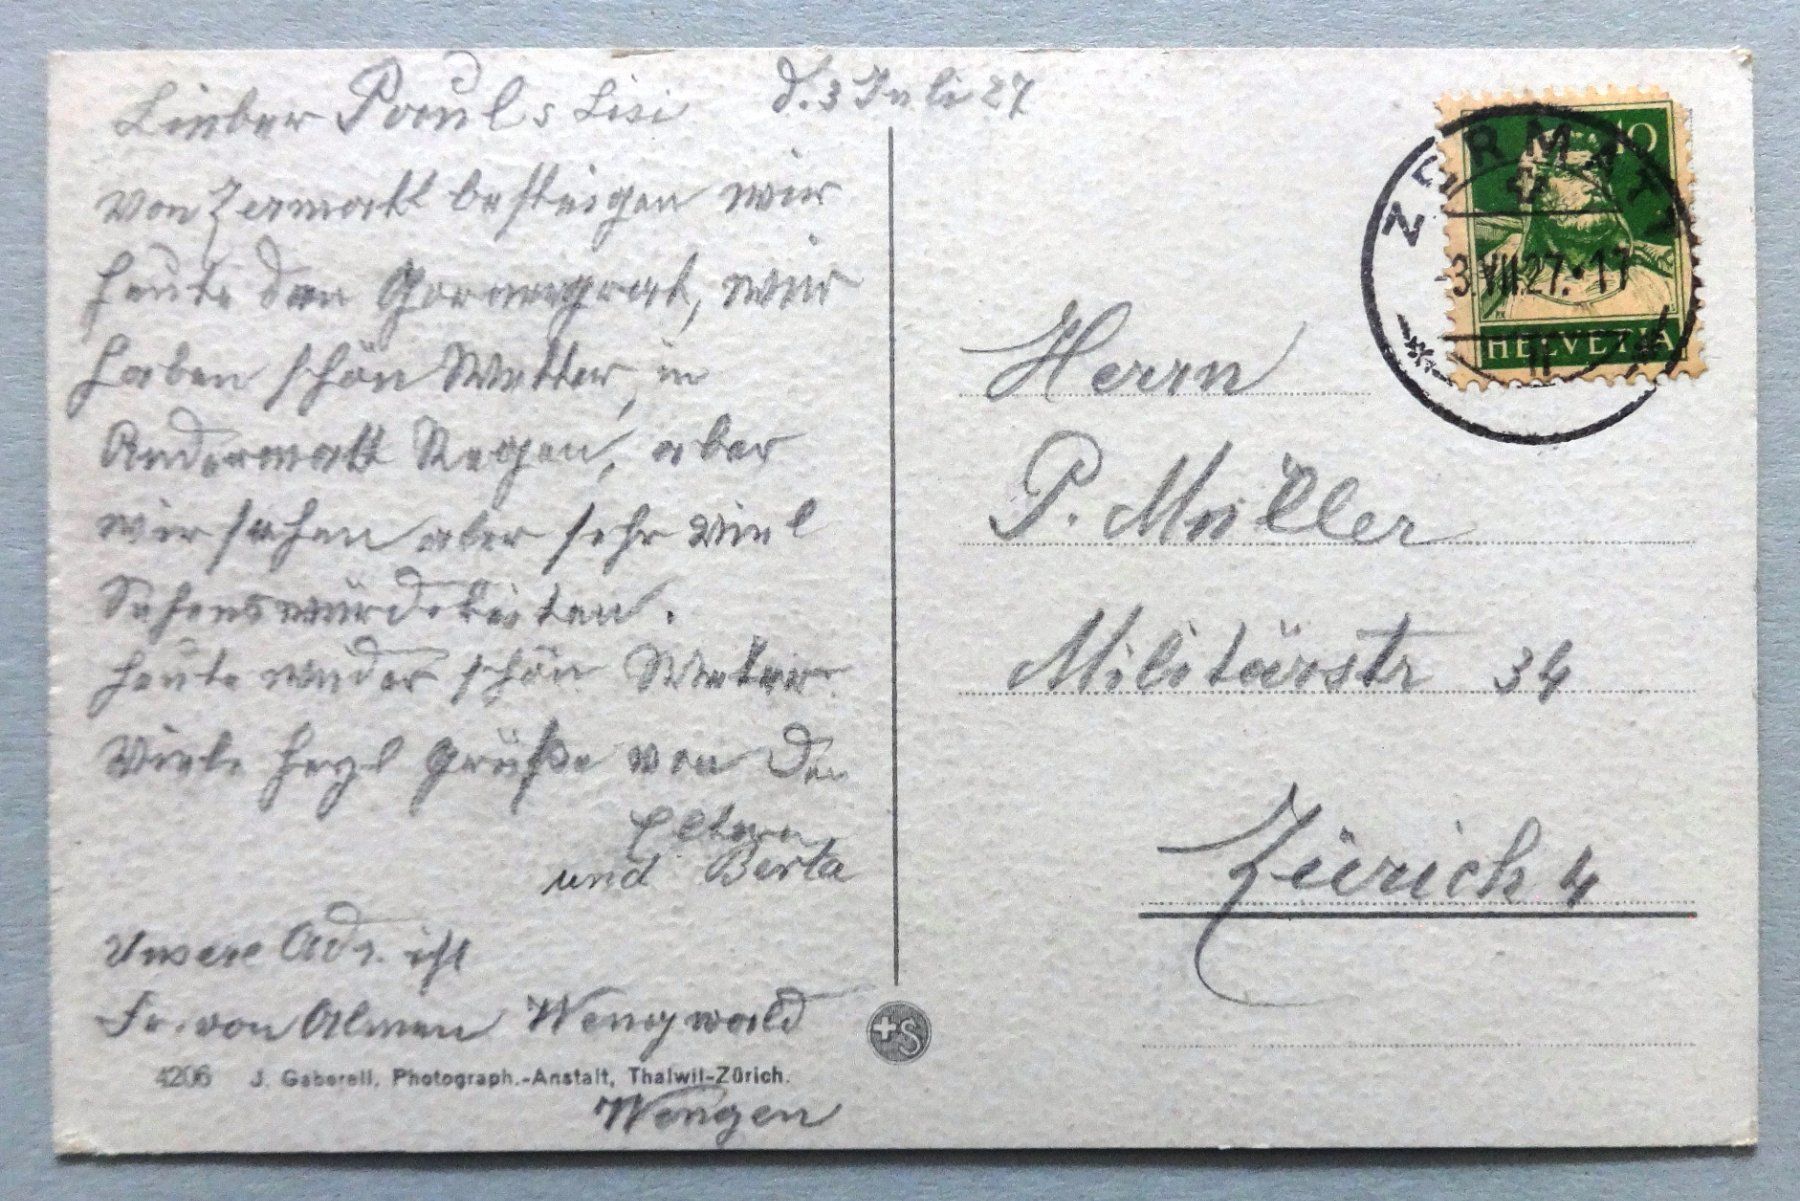 Lieber Paul s Lisi
d. 3 Juli 27
von Zermatt besteigen wir
heute den Gornergrat, wir
haben schön Wetter, in
Andermatt Regen, aber
wir sahen aber sehr viel
Sehenswürdekeiten.
heute wieder schön Wetter.
Viele herzl Grüße von den
Eltern
und Berta
Unsere Adr. ist
Fr. von Almen Wengwald
4206 J. Gaberell, Photograph.-Anstalt, Thalwil-Zürich.
Wengen
+S
10
ZERMATT
-3.VII.27.17
HELVETIA
Herrn
P. Müller
Militärstr 34
Zürich 4